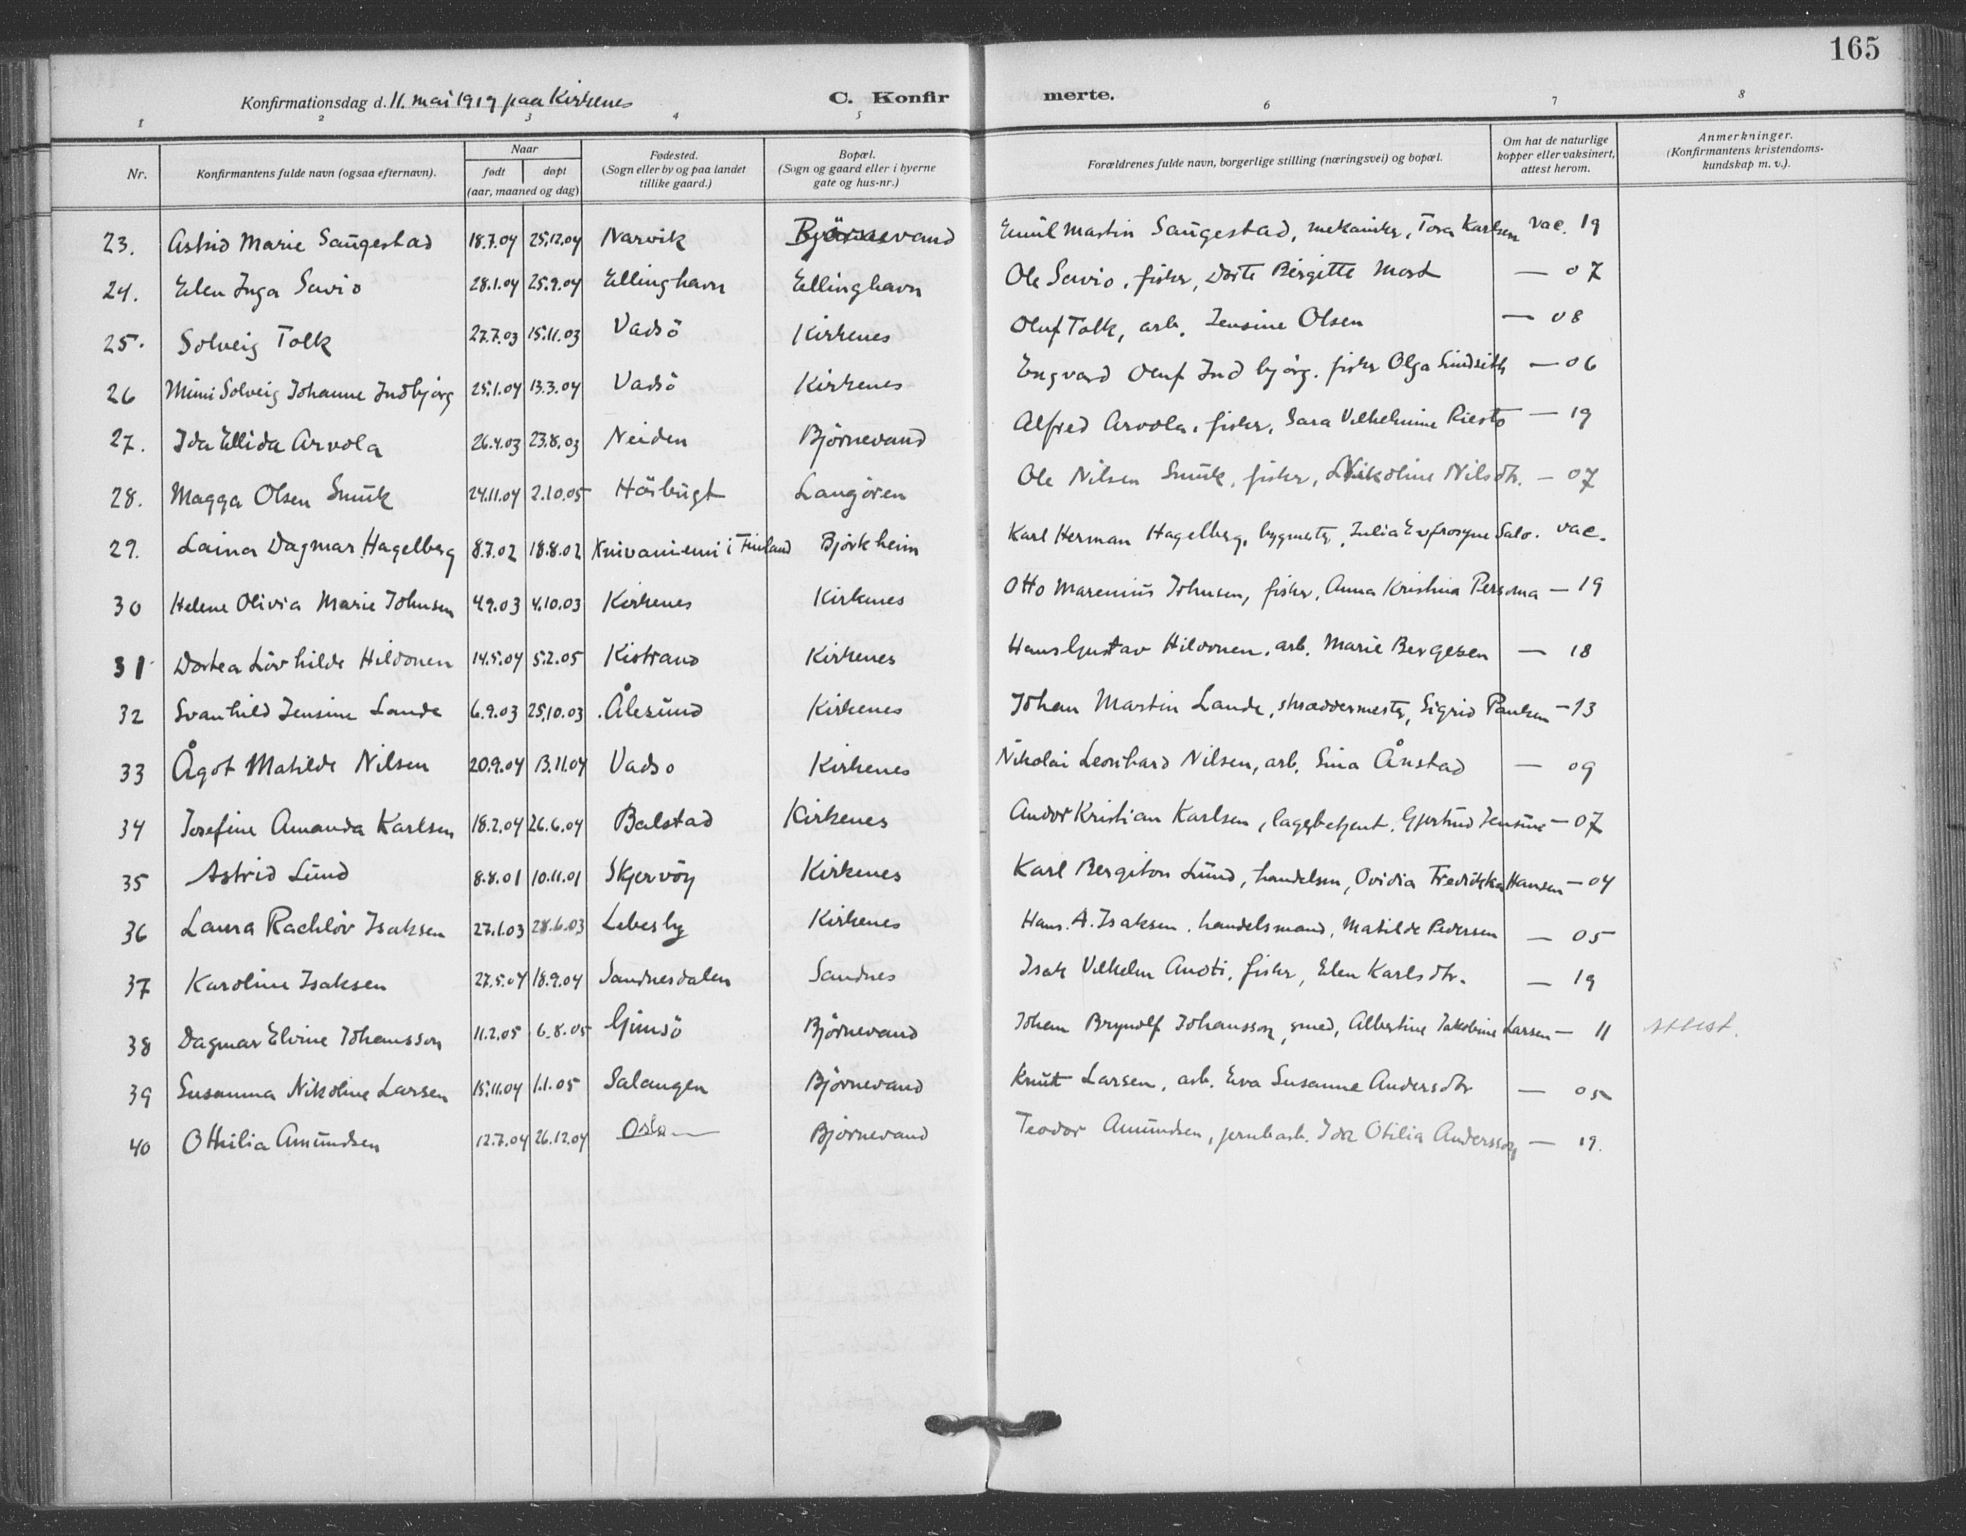 165
Konfirmationsdag d. 11. mai 1919 paa Kirkenes C. Konfirmerte.
1 2 3 4 5 6 7 8
Nr. Konfirmantens fulde navn (ogsaa efternavn). Naar født døpt (aar, maaned og dag) Fødested. (Sogn eller by og paa landet tillike gaard.) Bopæl. (Sogn og gaard eller i byerne gate og hus-nr.) Forældrenes fulde navn, borgerlige stilling (næringsvei) og bopæl. Om hat de naturlige kopper eller vaksinert, attest herom. Anmerkninger. (Konfirmantens kristendomskundskap m. v.).
23. Astrid Marie Saugestad 18.7.04 25.12.04 Narvik Björnevand Emil Martin Saugestad, mekaniker, Tora Karlsen vac. 19
24. Elen Inga Savio 28.1.04 25.9.04 Ellinghavn Ellinghavn Ole Savio, fisker, Dorte Birgitte Mort — 07
25. Solveig Tolk 27.7.03 15.11.03 Vadsö Kirkenes Oluf Tolk, arb. Jensine Olsen — 08
26 Mimi Solveig Johanne Indbjörg 25.1.04 13.3.04 Vadsö Kirkenes Engvard Oluf Indbjörg, fisker Olga — 06
27. Ida Ellida Arvola 26.4.03 23.8.03 Neiden Björnevand Alfred Arvola, fisker, Sara Vilhelmine Riesto — 19
28. Magga Olsen Smuk 24.11.04 2.10.05 Langören Ole Nilsen Smuk, fisker, Nikoline Nilsdtr. — 07
29. Laina Dagmar Hagelberg 8.7.02 18.8.02 Knivaniemi i Finland Björkheim Karl Herman Hagelberg, bygmester, Julia Eufrosyne Salo. vac.
30 Helene Olivia Marie Johnsen 4.9.03 4.10.03 Kirkenes Kirkenes Otto Marenius Johnsen, fisker, Anna Kristina Persoma — 19
31 Dortea Lövhilde Hildonen 14.5.04 5.2.05 Kistrand Kirkenes Hans Gustav Hildonen, arb. Marie Bergesen — 18
32 Svanhild Jensine Lande 6.9.03 25.10.03 Ålesund Kirkenes Johan Martin Lande, skræddermester, Sigrid Paulsen — 13
33 Ågot Matilde Nilsen 20.9.04 13.11.04 Vadsø Kirkenes Nikolai Leonhard Nilsen, arb. Sina Ånstad — 09
34 Josefine Amanda Karlsen 18.2.04 26.6.04 Balstad Kirkenes Andor Kristian Karlsen, lagerbetjent. Gjertrud Jensine — 07
35 Astrid Lund 8.8.01 10.11.01 Skjervöy Kirkenes Karl Bergiton Lund, handelsm, Ovidia Fredrikka Hansen — 04
36 Laura Rachlöv Isaksen 27.1.03 28.6.03 Lebesby Kirkenes Hans. A. Isaksen, handelsmand, Matilde Pedersen — 05
37 Karoline Isaksen 27.5.04 18.9.04 Sandnesdalen Sandnes Isak Vilhelm Anoti, fisker, Elen Karlsdtr. — 19
38 Dagmar Elvine Johansson 11.2.05 6.8.05 Gimsö Björnevand Johan Brynolf Johansson, smed, Albertine Jakobine Larsen — 11 attest.
39 Susanna Nikoline Larsen 15.11.04 1.1.05 Salangen Björnevand Knut Larsen, arb. Eva Susanne Andersdtr — 05
40 Othilia Amundsen 12.7.04 26.12.04 Oslo Björnevand Teodor Amundsen, jernbarb. Ida Otilia Andersson — 19.